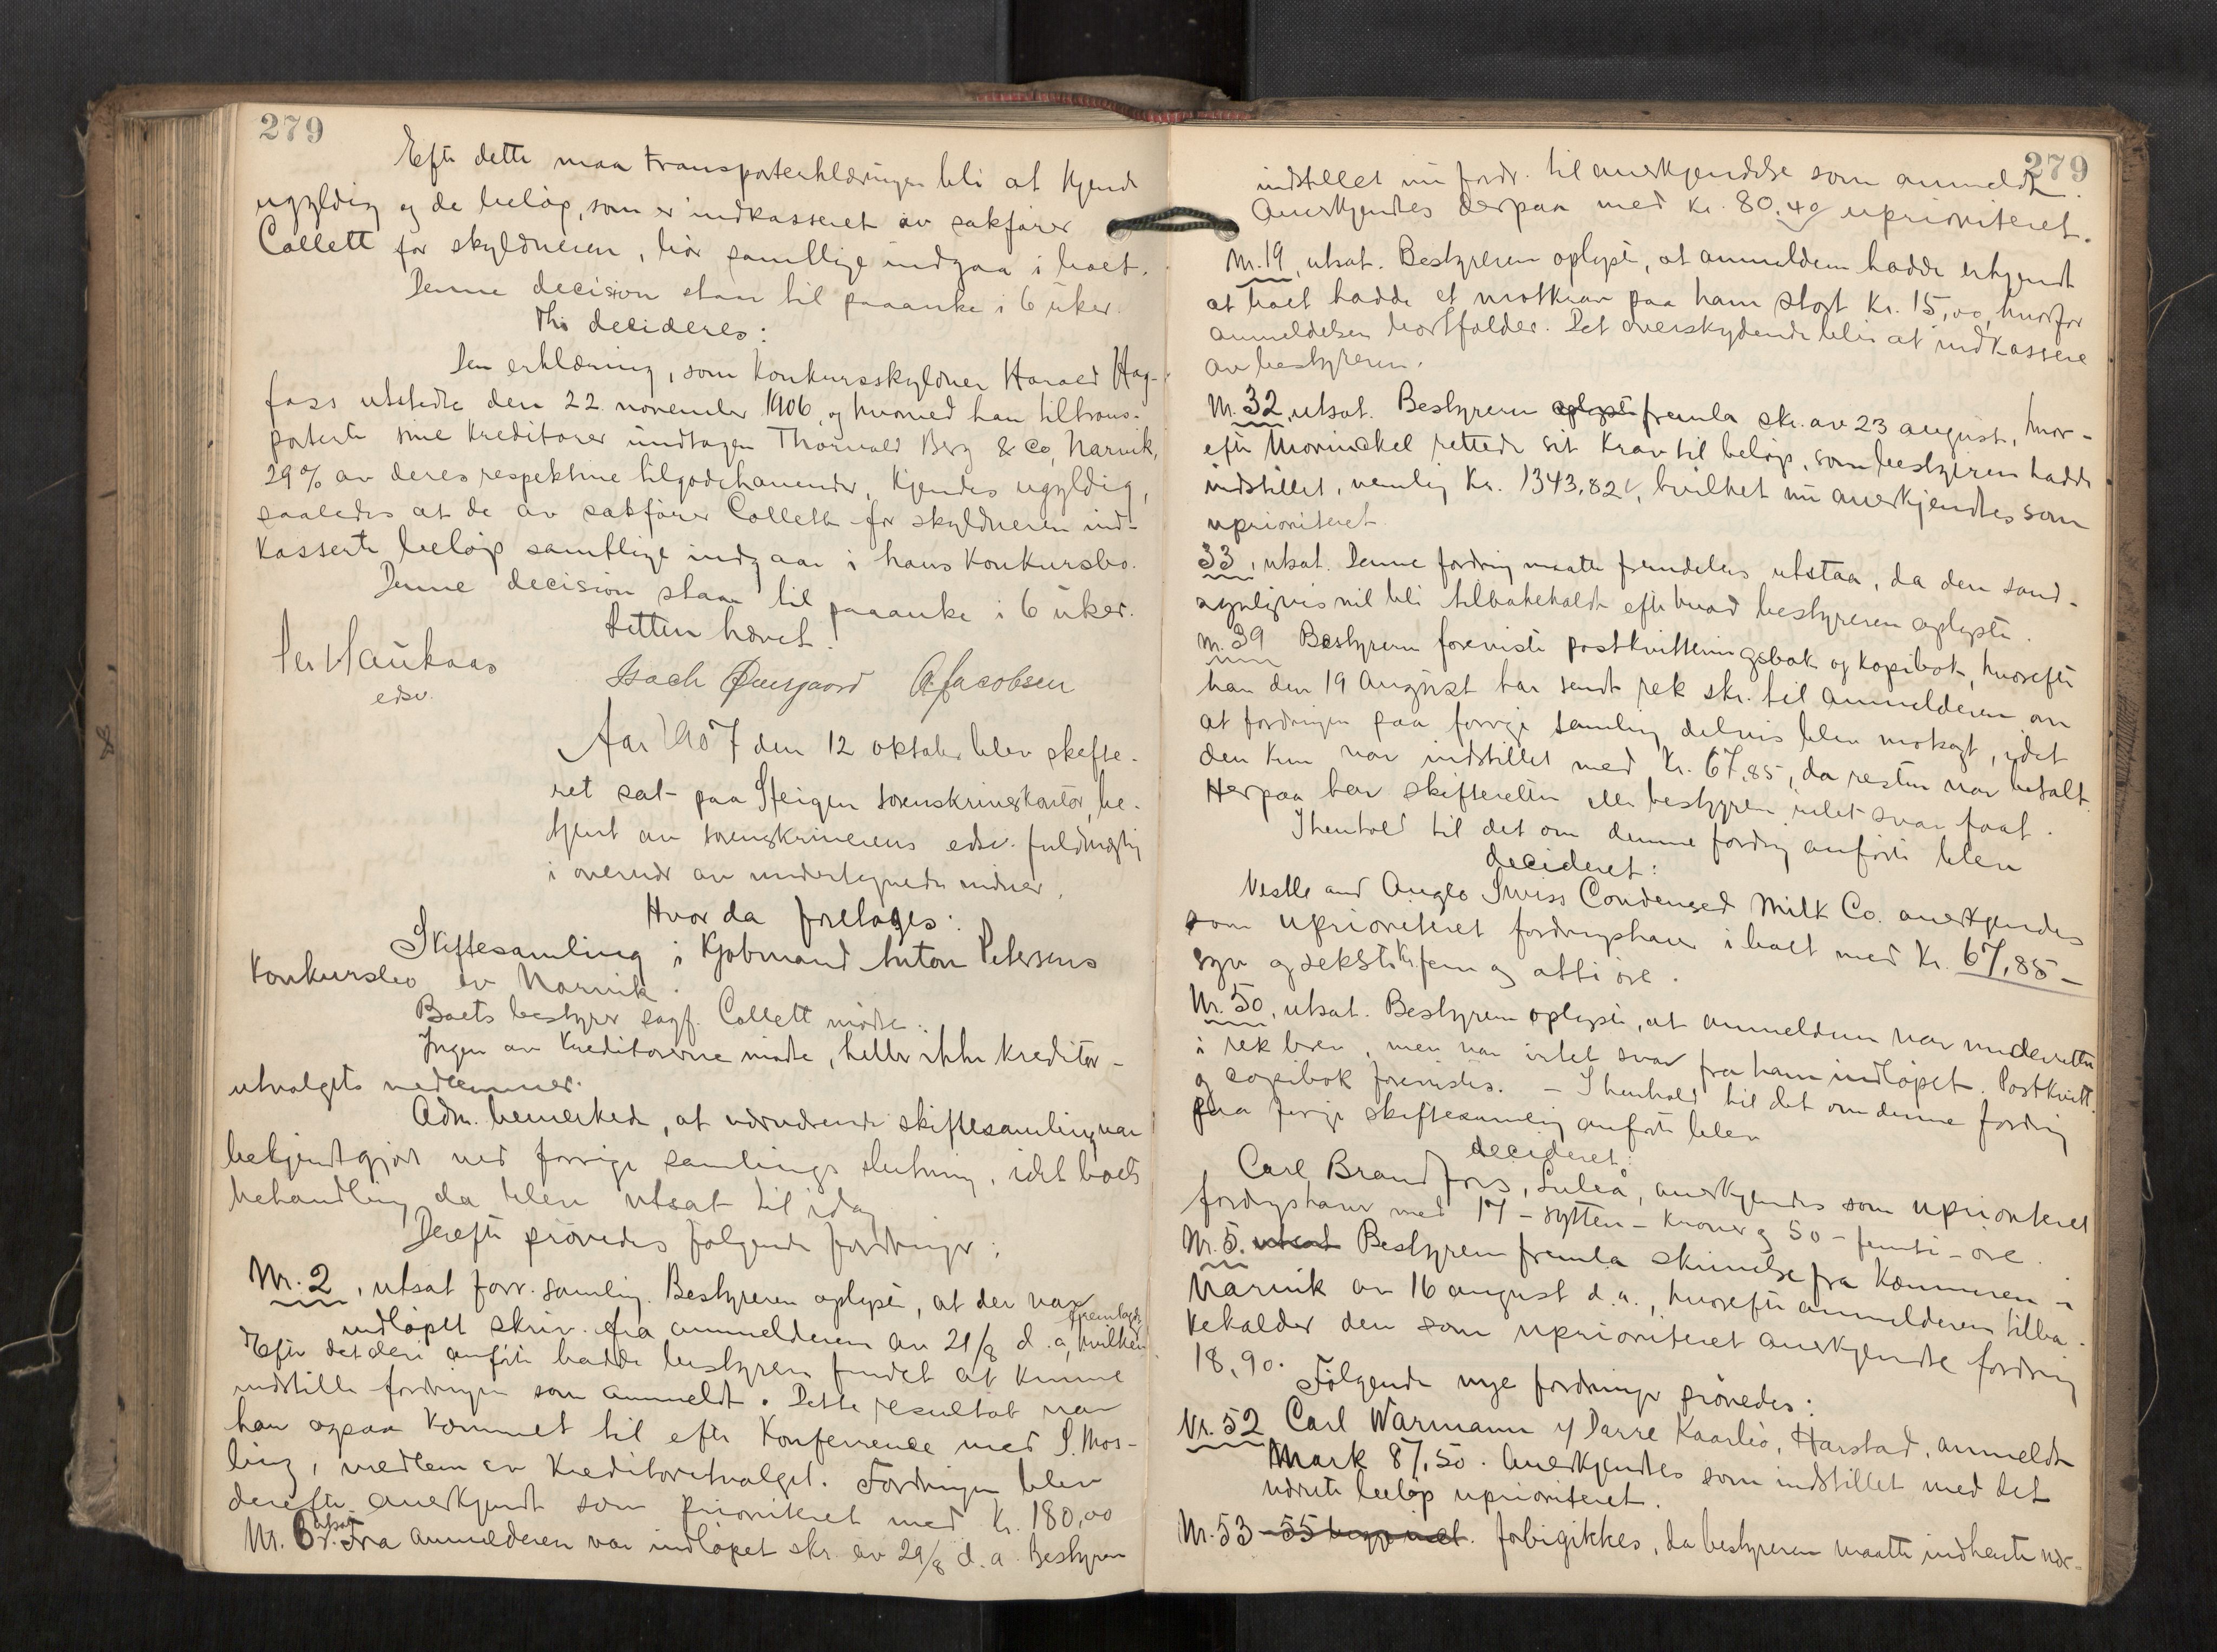 279
Efter dette maa transporterklæringen bli at kjende
ugyldig og de beløp, som er indkasseret av sakfører
Collett for skyldneren, bør samtlige indgaa i boet.
Denne decision staar til paaanke i 6 uker.
Thi decideres:
Den erklæring, som konkursskyldner Harald Hag-
fass utstedte den 22 november 1906, og hvorved han tiltrans-
porterte sine kreditorer undtagen Thorvald Berg & Co, Narvik,
29% av deres respektive tilgodehavender, kjendes ugyldig,
saaledes at de av sakfører Collett for skyldneren ind-
kasserte beløp samtlige indgaar i hans konkursbo.
Denne decision staar til paaanke i 6 uker.
Retten hævet.
Per Haukaas
edsv.
Isach Øvergaard A. Jacobsen
Aar 1907 den 12 oktober blev skifte-
ret sat paa Steigen sorenskriverkontor, be-
tjent av sorenskriverens edsv. fuldmægtig
i overvær av undertegnede vidner.
Hvor da foretoges:
Skiftesamling i Kjøbmand Anton Petersens
konkursbo av Narvik.
Boets bestyrer sagf. Collett møtte.
Ingen av kreditorerne møtte, heller ikke kreditor-
utvalgets medlemmer.
Adm. bemerkede, at nærværende skiftesamling var
bekjendtgjort ved forrige samlings slutning, idet boets
behandling da blev utsat til idag.
Derefter prøvedes følgende fordringer:
Nr. 2, utsat forr. samling. Bestyreren oplyste, at der var
indløpet skriv. fra anmelderen av 21/8 d.a, hvilken fremlagdes
Efter det deri anførte hadde bestyreren fundet at kunne
indstille fordringen som anmeldt. Dette resultat var
han ogsaa kommet til efter konference med S. Mos-
ling, medlem av kreditorutvalget. Fordringen blev
derefter anerkjendt som prioriteret med Kr. 180,00
Nr. 6, utsat. Fra anmelderen var indløpet skr. av 29/8 d.a. Bestyreren
279
indstillet nu fordr. til anerkjendelse som anmeldt.
Anerkjendtes derpaa med Kr. 80.40 uprioriteret.
Nr. 19, utsat. Bestyreren oplyste, at anmelderen hadde erkjendt
at boet hadde et motkrav paa ham stort Kr. 15,00, hvorfor
anmeldelsen bortfalder. Det overskydende blir at indkassere
av bestyreren.
Nr. 32, utsat. Bestyreren oplyste fremla skr. av 23 august, hvor-
efter Mowinckel rettede sit krav til beløp, som bestyreren hadde
indstillet, nemlig Kr. 1343,82, hvilket nu anerkjendtes som
uprioriteret.
33, utsat. Denne fordring maatte fremdeles utstaa, da den sand-
synligvis vil bli tilbakeholdt efter hvad bestyreren oplyste.
Nr. 39 Bestyreren foreviste postkvitteringsbok og kopibok, hvorefter
han den 19 august har sendt rek skr. til anmelderen om
at fordringen paa forrige samling delvis blev motsagt, idet
den kun var indstillet med Kr. 67,85, da resten var betalt.
Herpaa har skifteretten eller bestyreren intet svar faat.
I henhold til det om denne fordring anførte blev
decideret:
Nestle and Anglo Swiss Condensed Milk Co. anerkjendes
som uprioriteret fordringshaver i boet med Kr. 67,85 –
syv og seksti kr fem og otti øre.
Nr. 50, utsat. Bestyreren oplyste, at anmelderen var underrettet
i rek brev, men var intet svar fra ham indløpet. Postkvitt.
og copibok forevistes. – I henhold til det om denne fordring
paa forrige skiftesamling anførte blev
decideret:
Carl Brandfors, Luleå, anerkjendes som uprioriteret
fordringshaver med 17 – sytten – kroner og 50 – femti – øre.
Nr. 5. utsat Bestyreren fremla skrivelse fra Kæmneren i
Narvik av 16 august d.a., hvorefter anmelderen tilba-
keholder den som uprioriteret anerkjendte fordring
18,90.
Følgende nye fordringer prøvedes:
Nr. 52 Carl Warmann v/ Darre Kaarbø, Harstad, anmeldt
Mark 87,50. Anerkjendtes som indstillet med det
nævnte beløp uprioriteret.
Nr. 53 – 55 forbigikkes, da bestyreren maatte indhente nær-